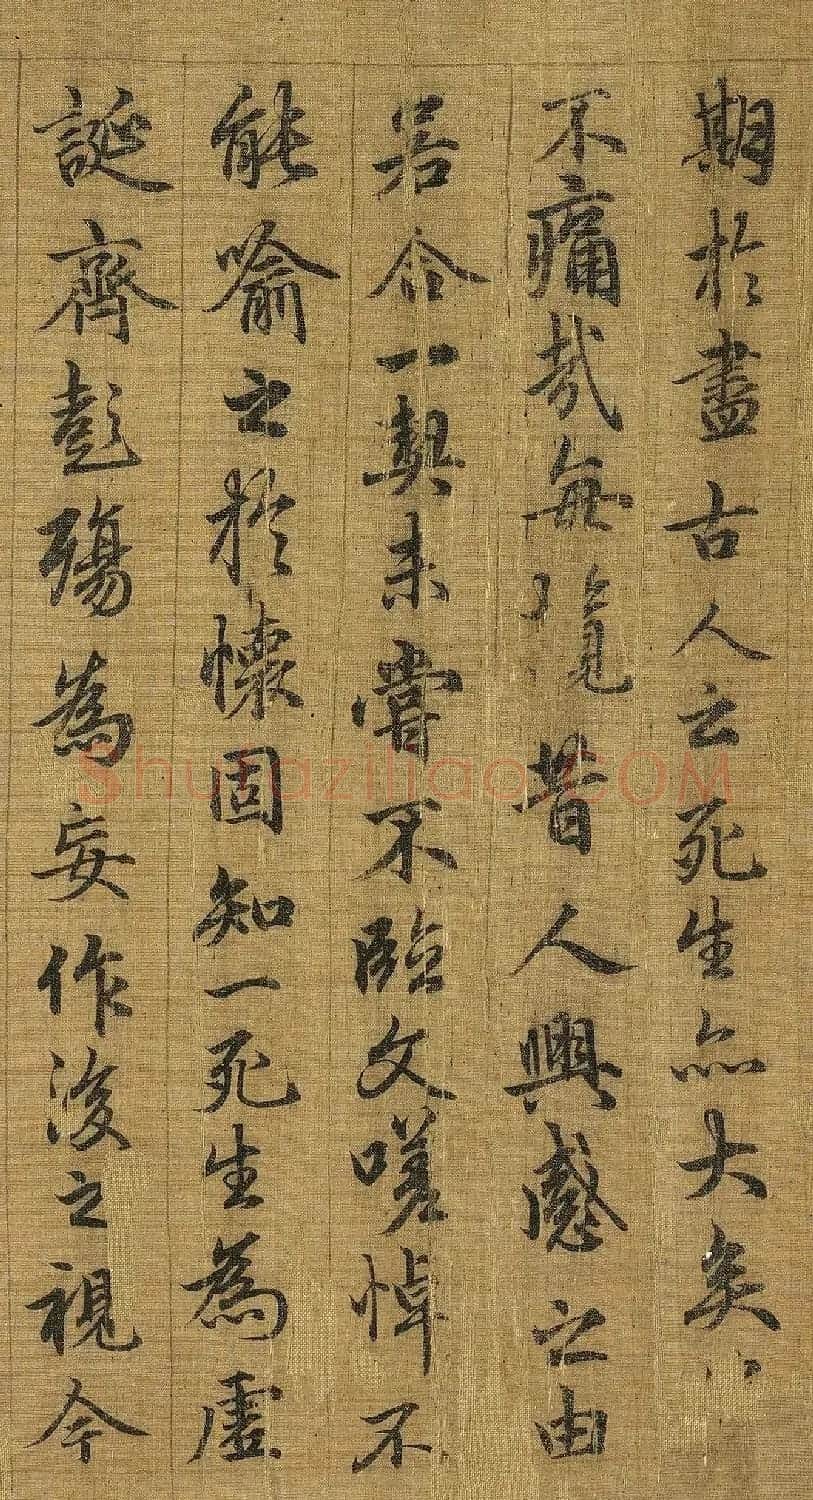 期於盡古人云死生亦大矣
不痛哉每覽昔人興感之由
若合一契未嘗不臨文嗟悼不
能喻之於懷固知一死生為虛
誕齊彭殤為妄作後之視今
Shufaziliao.COM